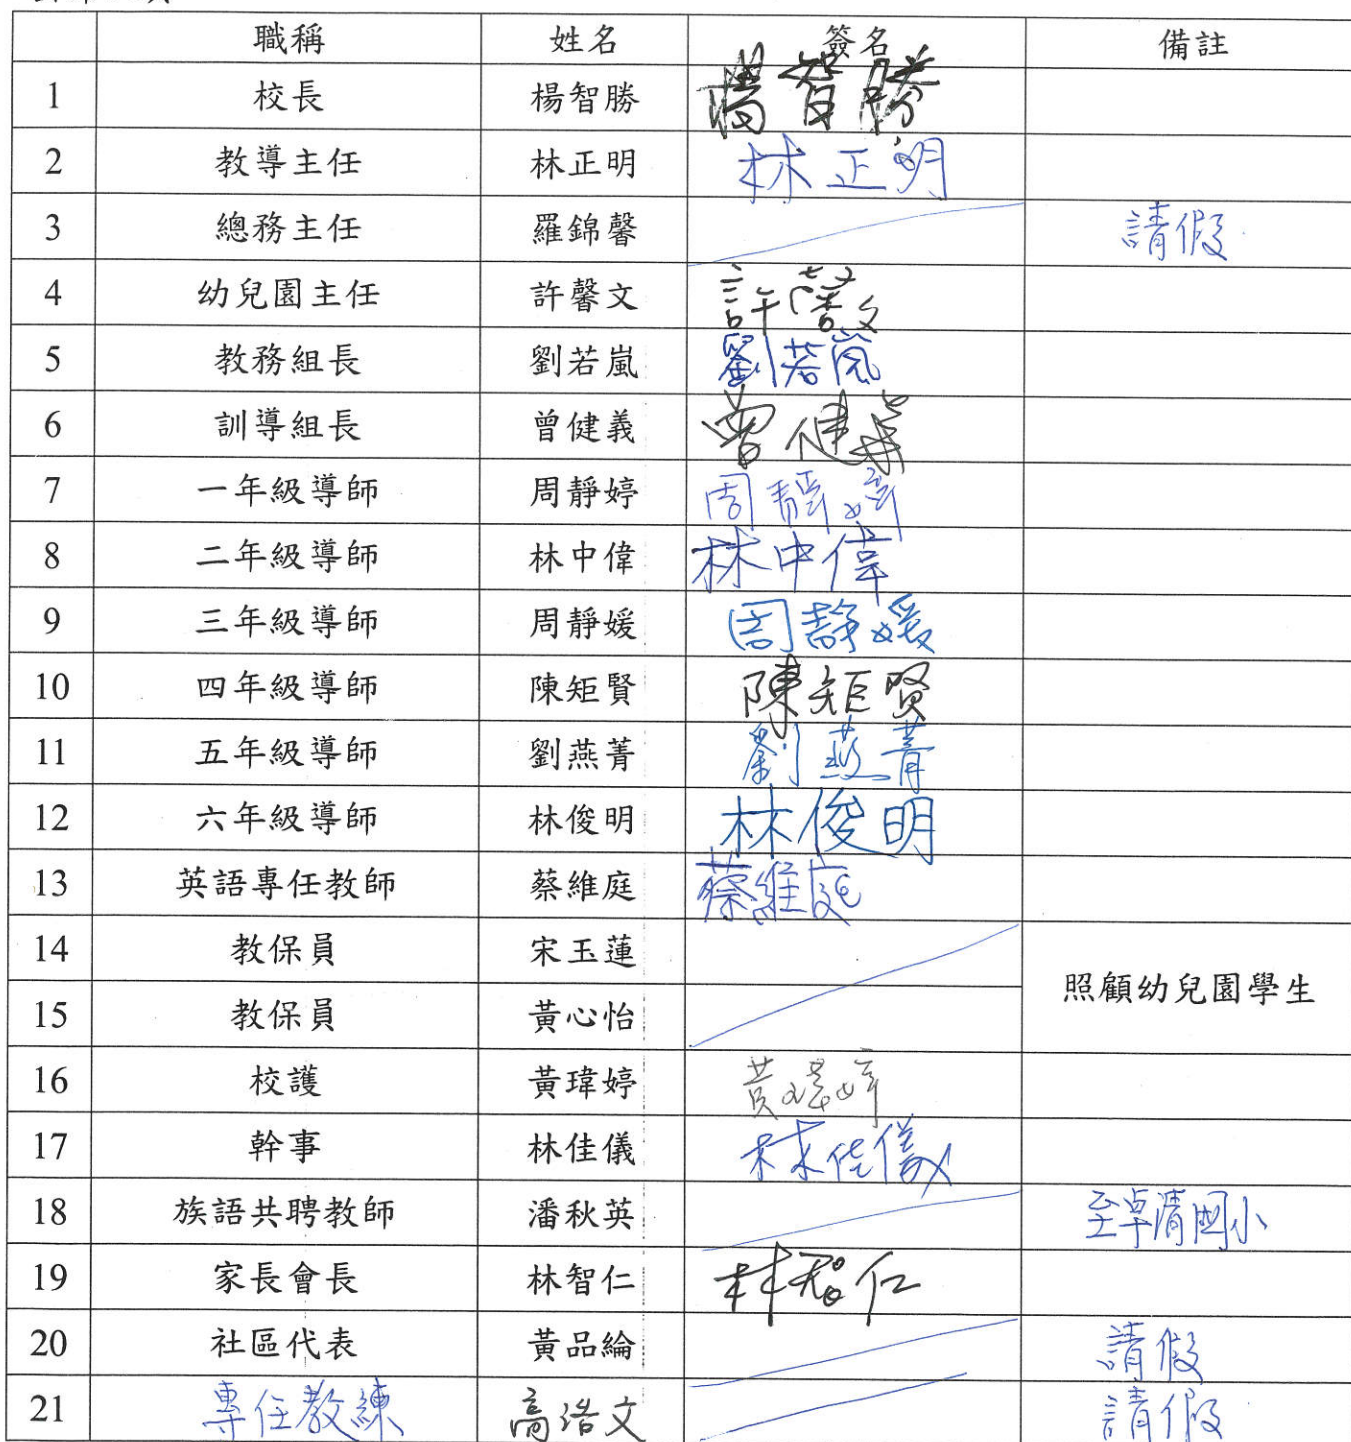 職稱 姓名 簽名 備註
1 校長 楊智勝 楊智勝
2 教導主任 林正明 林正明
3 總務主任 羅錦馨 請假
4 幼兒園主任 許馨文 許馨文
5 教務組長 劉若嵐 劉若嵐
6 訓導組長 曾健義 曾健義
7 一年級導師 周靜婷 周靜婷
8 二年級導師 林中偉 林中偉
9 三年級導師 周靜媛 周靜媛
10 四年級導師 陳矩賢 陳矩賢
11 五年級導師 劉燕菁 劉燕菁
12 六年級導師 林俊明 林俊明
13 英語專任教師 蔡維庭 蔡維庭
14 教保員 宋玉蓮 照顧幼兒園學生
15 教保員 黃心怡
16 校護 黃瑋婷 黃瑋婷
17 幹事 林佳儀 林佳儀
18 族語共聘教師 潘秋英 至卓清國小
19 家長會長 林智仁 林智仁
20 社區代表 黃品綸 請假
21 專任教練 高浩文 請假